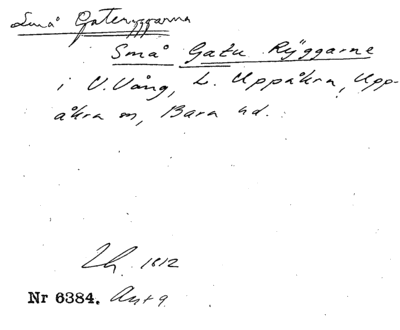 Små Gateryggarna
Små Gatu Ryggarne
i V. Vång, L. Uppåkra, Upp-
åkra sn, Bara hd.
Lh. 1812
Nr 6384. Ant 9